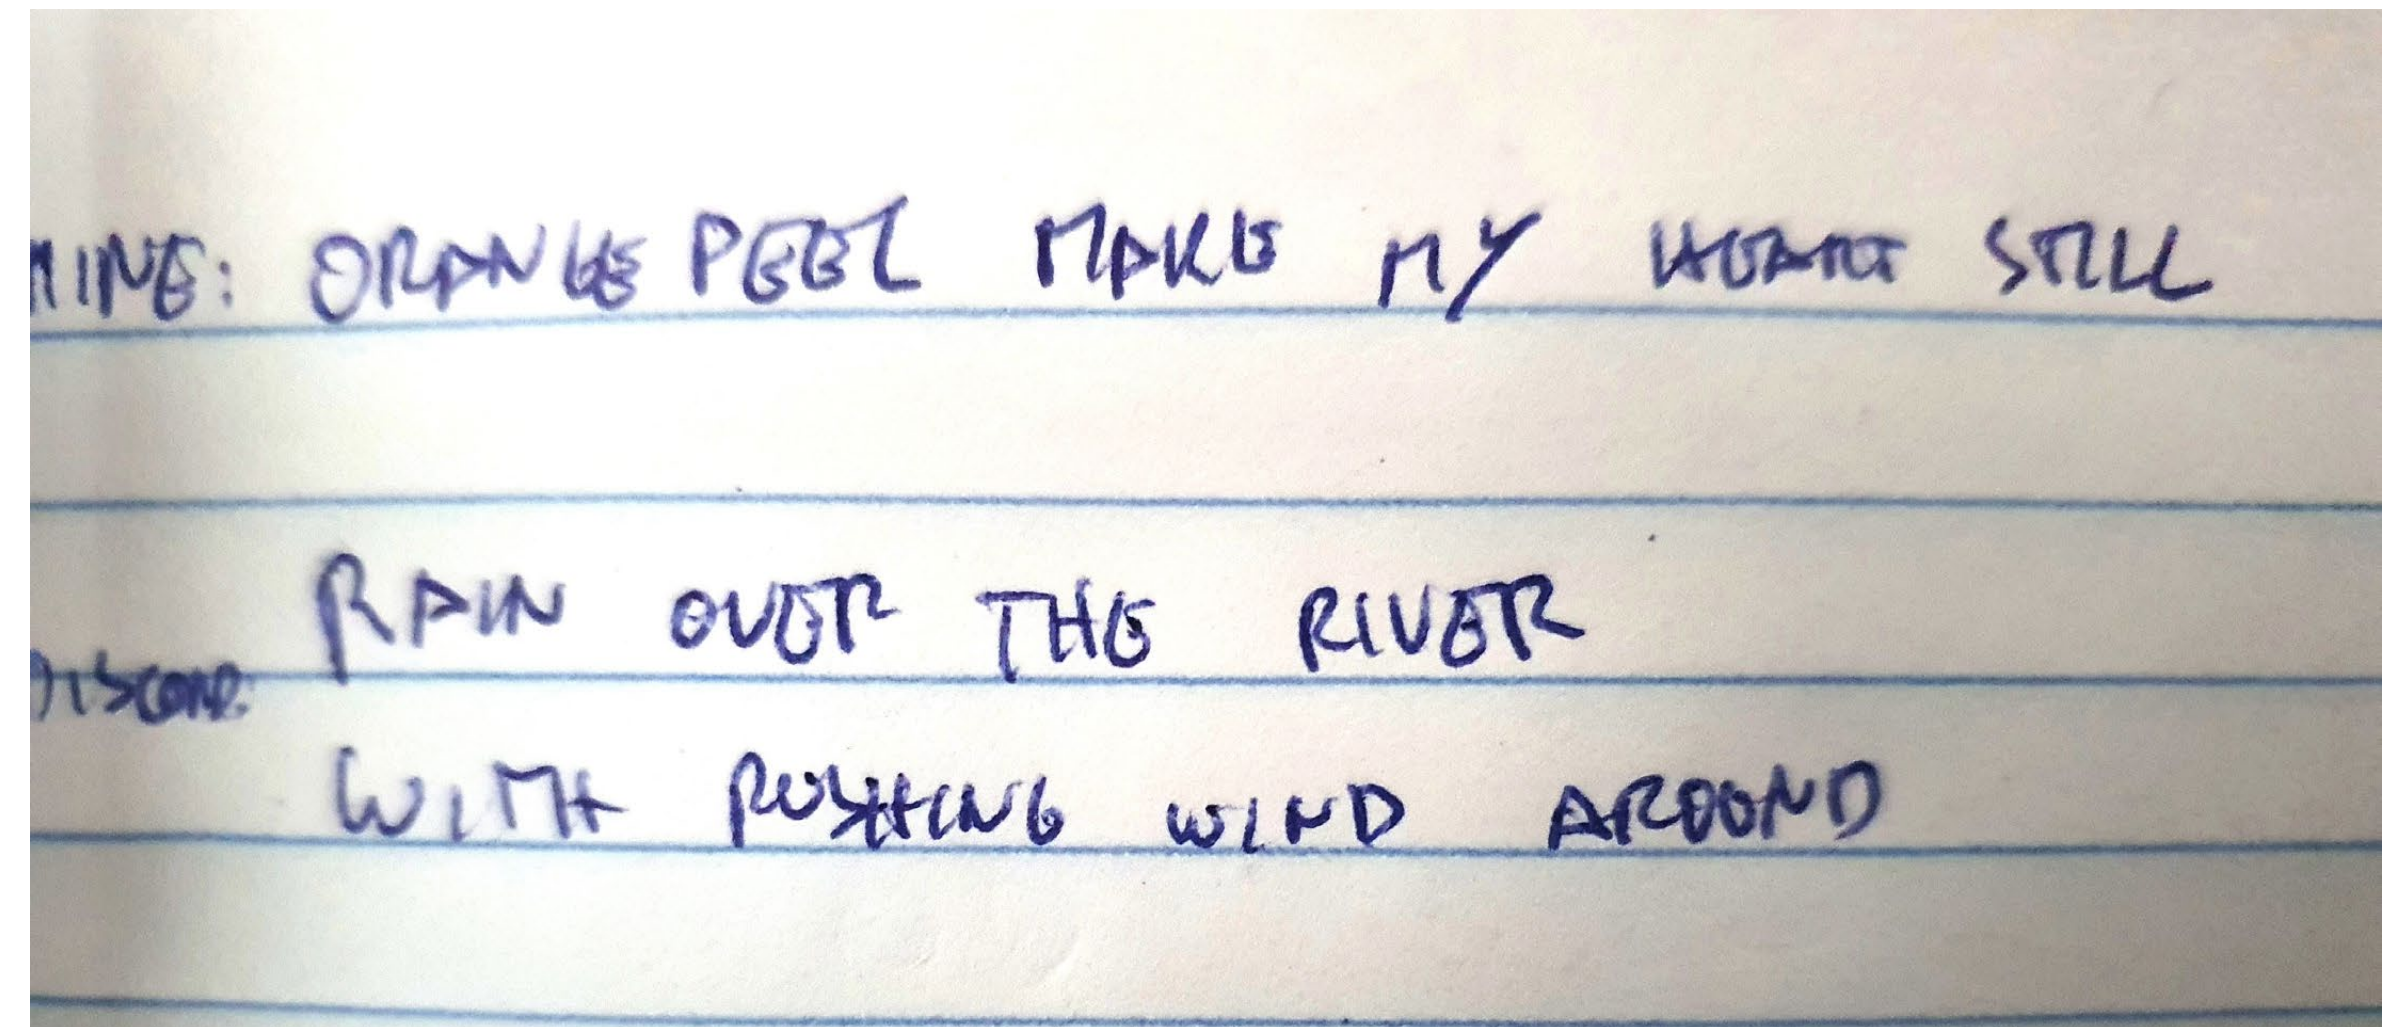 MINE: ORANGE PEEL MAKE MY HEART STILL
RAIN OVER THE RIVER
WITH RUSHING WIND AROUND